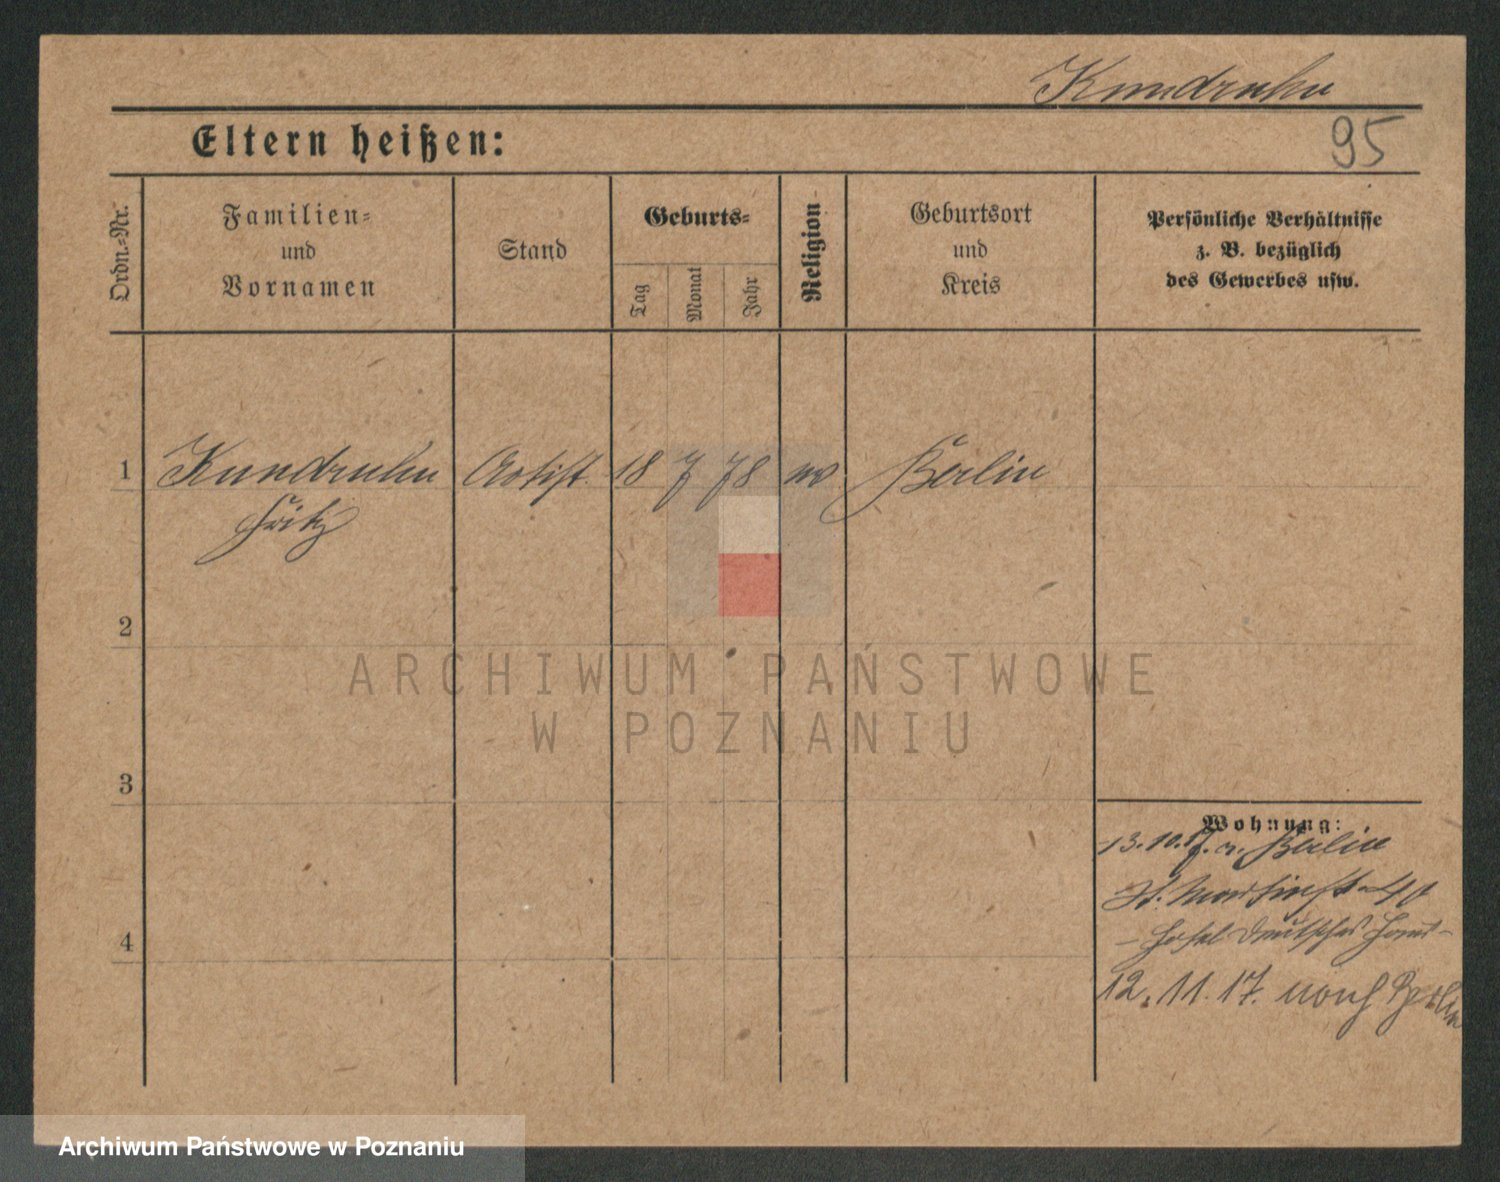 Kundruhn
Eltern heißen:
95
Ordn.-Nr.
Familien-
und
Vornamen
Stand
Geburts-
Tag
Monat
Jahr
Religion
Geburtsort
und
Kreis
Persönliche Verhältnisse
z. B. bezüglich
des Gewerbes usw.
1 Kundruhn Artist. 18 7 78 Berlin
Fritz
2
3
4
Wohnung:
13.10.17. a. Berlin
St. Martinst 40
- Hotel Deutsches Haus -
12. 11. 17. nach Berlin
ARCHIWUM PAŃSTWOWE
W POZNANIU
Archiwum Państwowe w Poznaniu